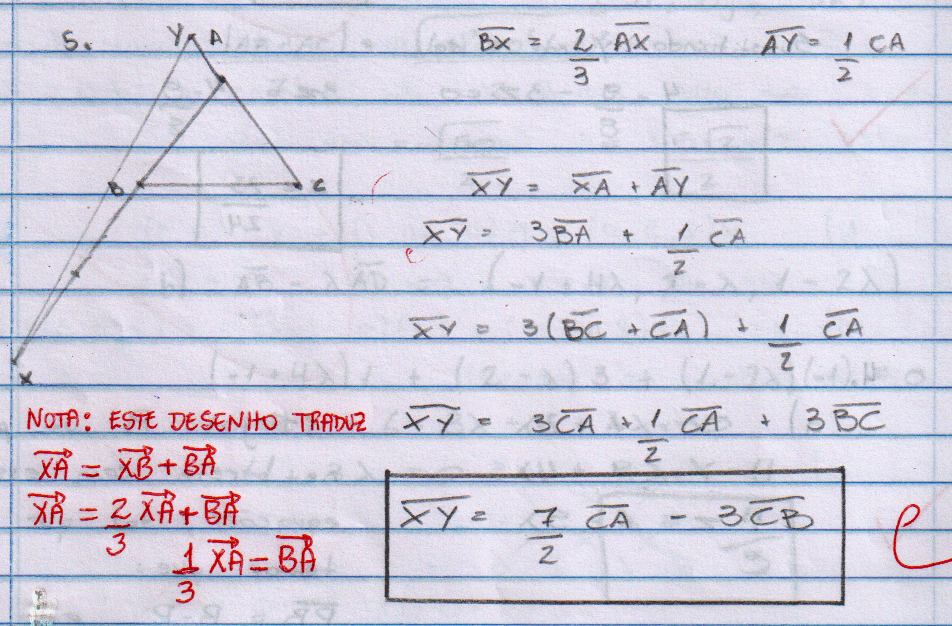 5.
Y A
B C
X
B̅X̅ = 2/3 A̅X̅ A̅Y̅ = 1/2 CA
X̅Y̅ = X̅A̅ + A̅Y̅
X̅Y̅ = 3B̅A̅ + 1/2 C̅A̅
X̅Y̅ = 3(B̅C̅ + C̅A̅) + 1/2 C̅A̅
X̅Y̅ = 3C̅A̅ + 1/2 C̅A̅ + 3B̅C̅
X̅Y̅ = 7/2 C̅A̅ - 3C̅B̅
NOTA: ESTE DESENHO TRADUZ
X͞A⃗ = X͞B⃗ + B͞A⃗
X͞A⃗ = 2/3 X͞A⃗ + B͞A⃗
1/3 X͞A⃗ = B͞A⃗